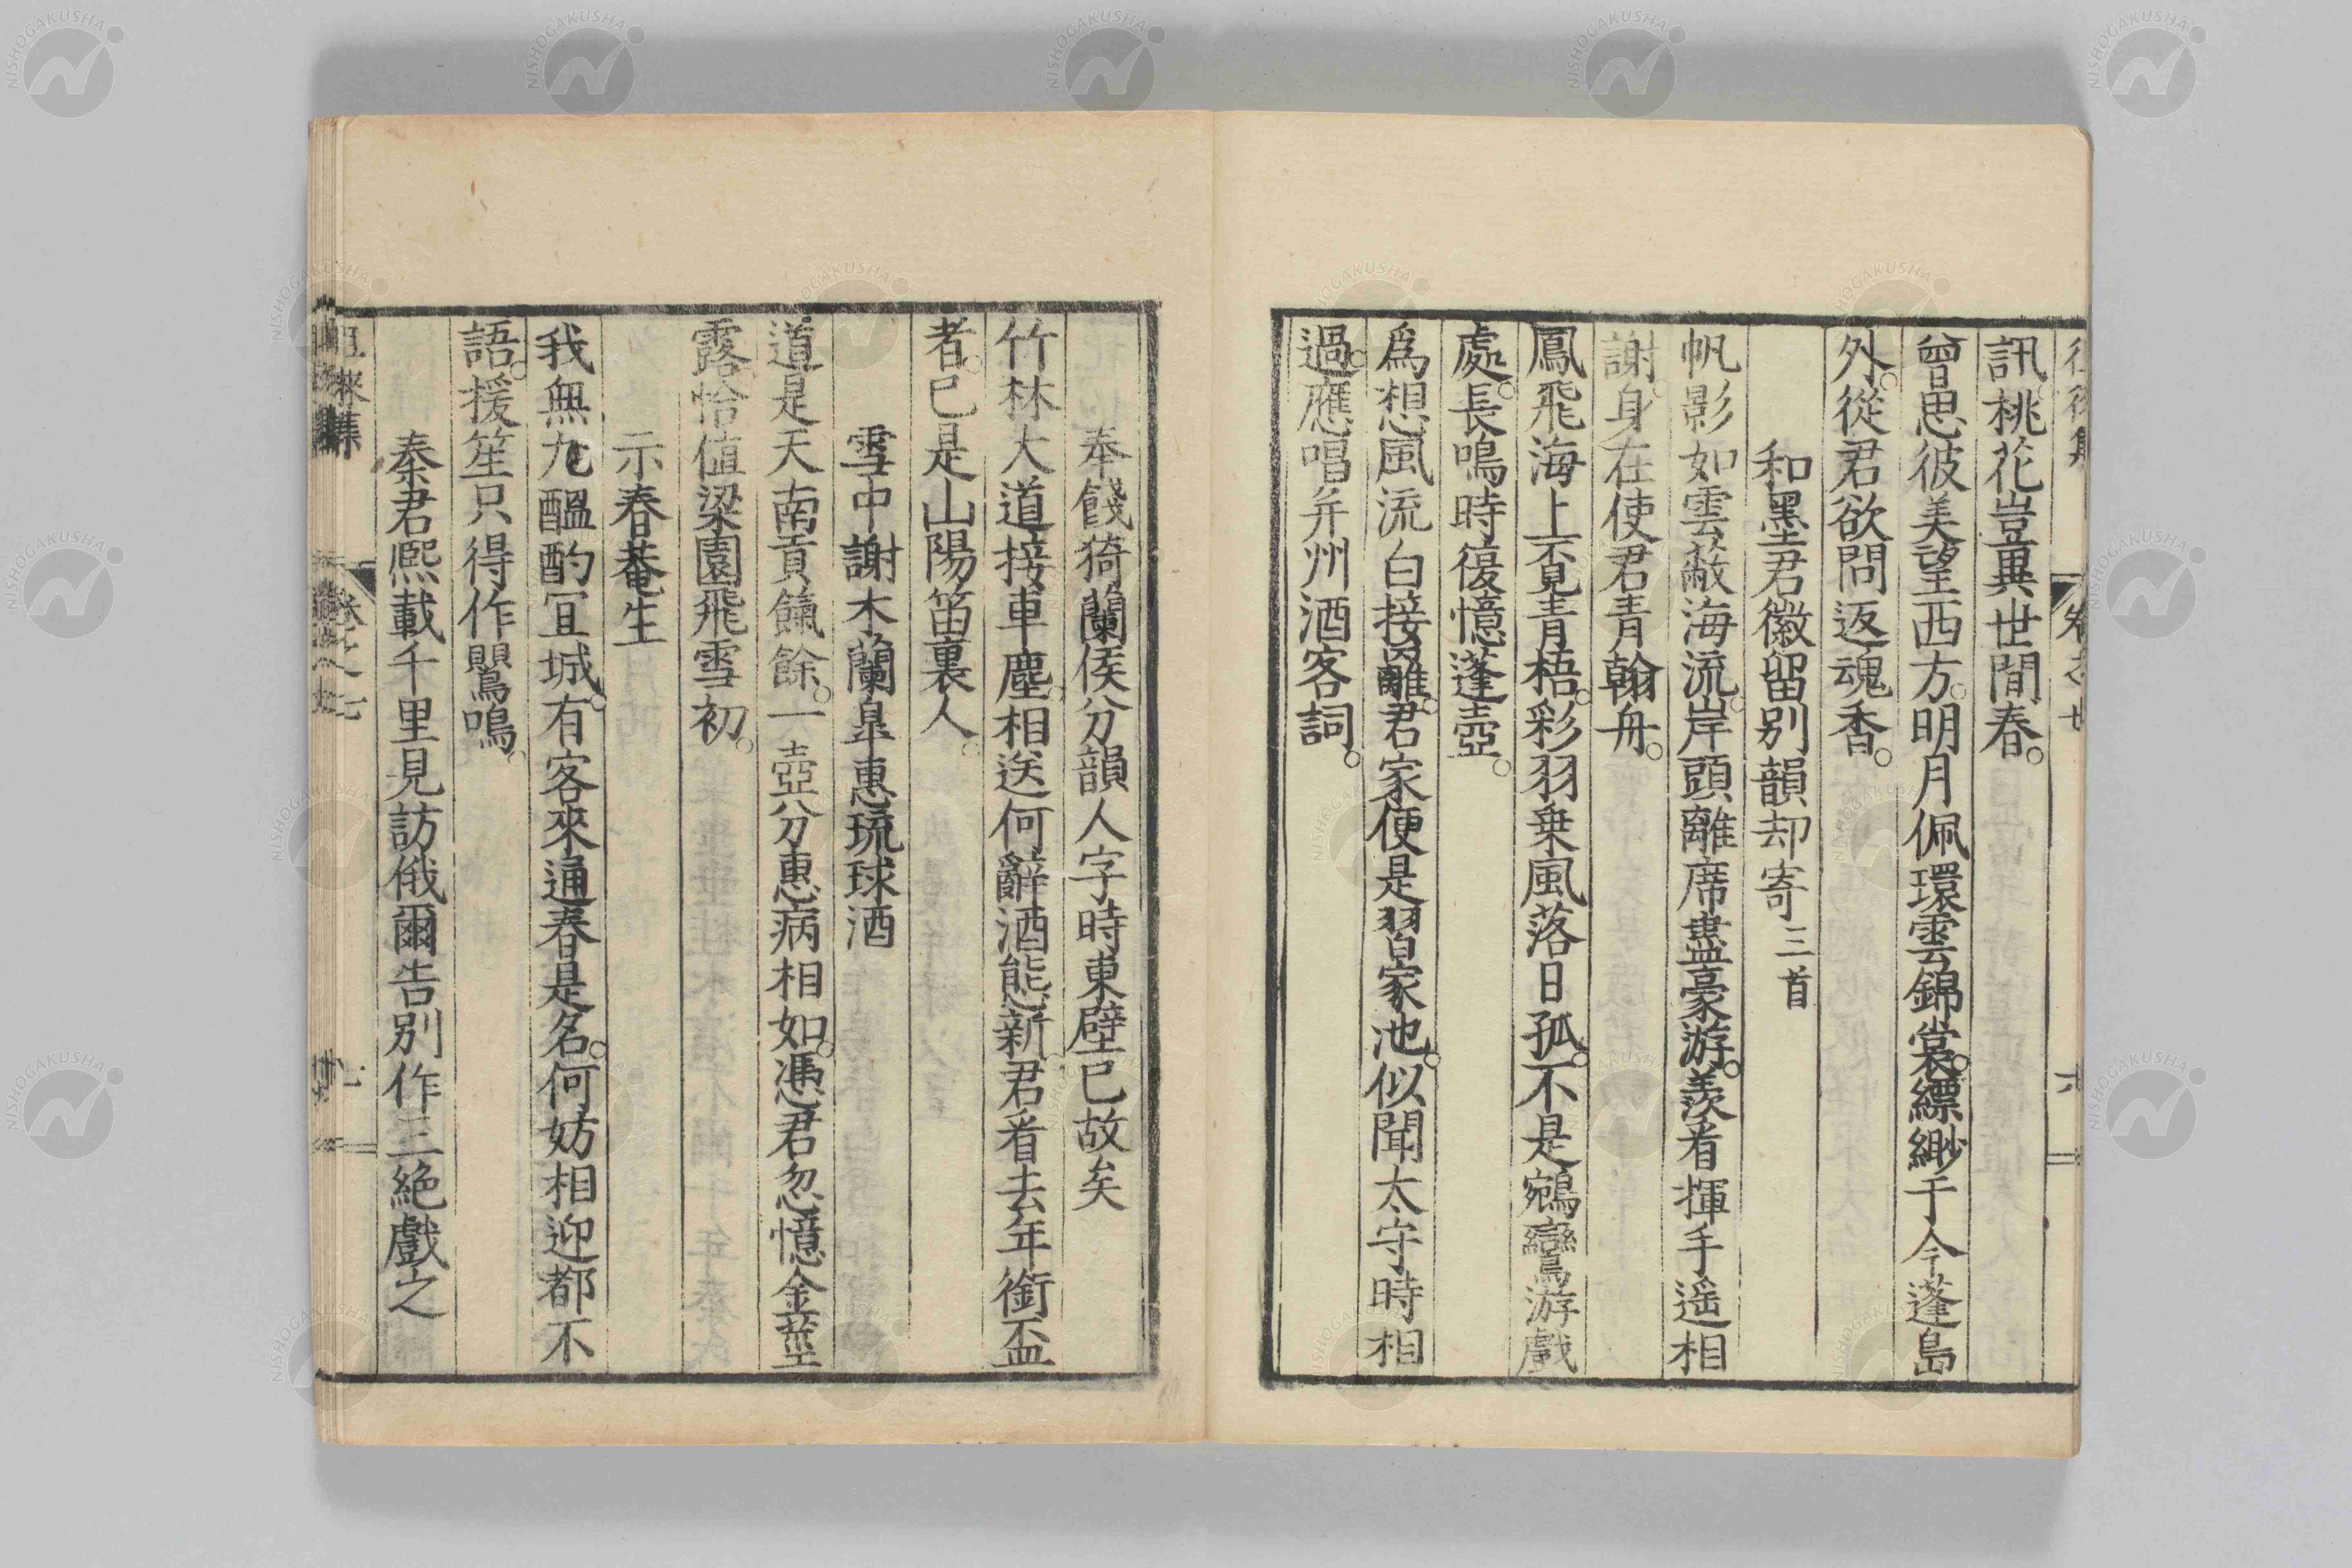 訊桃花豈異世間春。
曾思彼美望西方。明月佩環雲錦裳。縹緲于今蓬島
外。從君欲問返魂香。
和墨君徽留別韻却寄三首
帆影如雲蔽海流。岸頭離席盡豪游。羨看揮手遥相
謝。身在使君青翰舟。
鳳飛海上覓青梧。彩羽乗風落日孤。不是鵷鸞游戲
處。長鳴時復憶蓬壺。
爲想風流白接䍦。君家便是習家池。似聞太守時相
過。應唱并州酒客詞。
奉餞猗蘭侯分韻人字時東壁已故矣
竹林大道接車塵。相送何辭酒態新。君看去年銜盃
者。已是山陽笛裏人。
雪中謝木蘭皐惠琉球酒
道是天南貢餘。一壺分惠病相如。憑君忽憶金莖
露。恰值梁園飛雪初。
示春菴生
我無九醞酌冝城。有客來通春是名。何妨相迎都不
語。援笙只得作鸎鳴。
秦君熈載千里見訪俄爾告別作三絶戲之
徂來集 卷之七 七
NISHOGAKUSHA